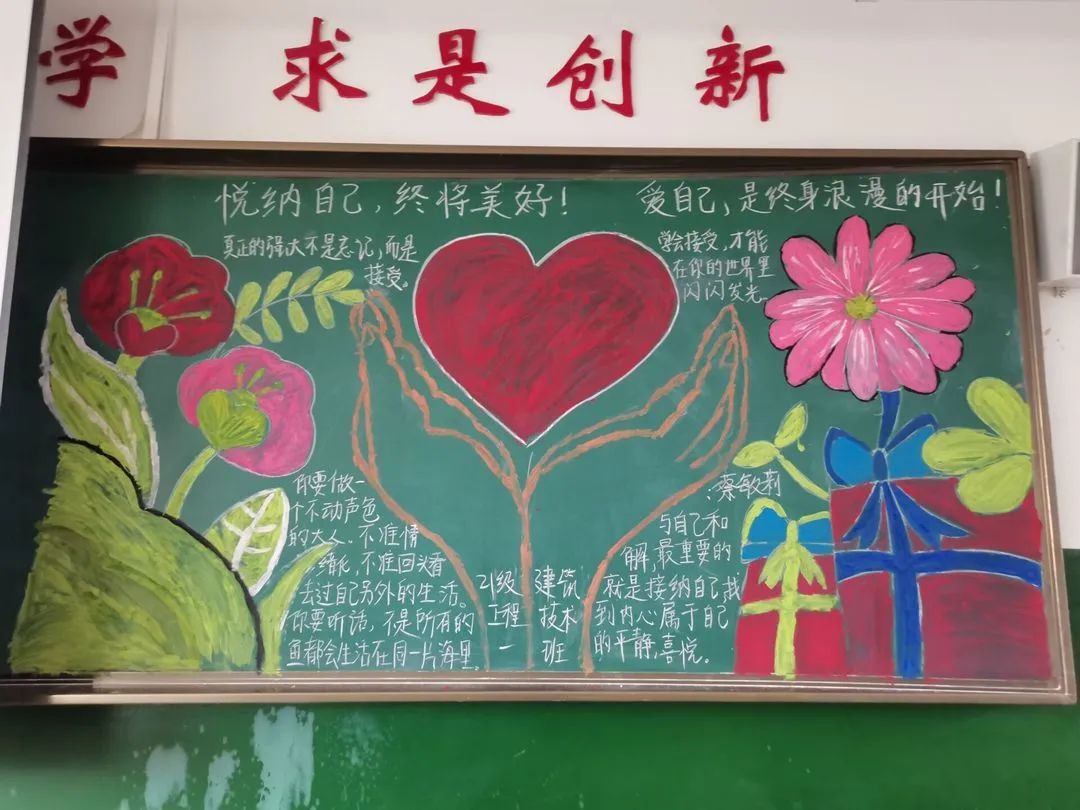 学 求是创新
悦纳自己,终将美好!
爱自己,是终身浪漫的开始!
真正的强大不是忘记,而是
接受。
学会接受,才能
在你的世界里
闪闪发光
你要做一
个不动声色
的大人.不准情
绪化,不准回头看
去过自己另外的生活。
你要听话,不是所有的
鱼都会生活在同一片海里.
21级 建筑
工程 技术
一 班
:蔡敏莉
与自己和
解,最重要的
就是接纳自己,找
到内心属于自己
的平静,喜悦。